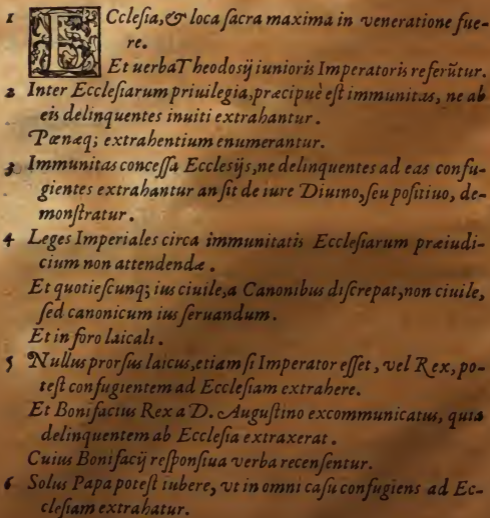 1 ECclesia,& loca sacra maxima in veneratione fue-
re.
Et uerba Theodosij iunioris Imperatoris referūtur.
2 Inter Ecclesiarum priuilegia,præcipuè est immunitas, ne ab
eis delinquentes inuiti extrahantur.
Pœnæq; extrahentium enumerantur.
3 Immunitas concessa Ecclesijs,ne delinquentes ad eas confu-
gientes extrahantur an sit de iure Diuino,seu positiuo, de-
monstratur.
4 Leges Imperiales circa immunitatis Ecclesiarum præiudi-
cium non attendendæ.
Et quotiescunq; ius ciuile,a Canonibus discrepat,non ciuile,
sed canonicum ius seruandum.
Et in foro laicali.
5 Nullus prorsus laicus,etiam si Imperator esset, vel Rex, po-
test confugientem ad Ecclesiam extrahere.
Et Bonifacius Rex a D. Augustino excommunicatus, quia
delinquentem ab Ecclesia extraxerat.
Cuius Bonifacij responsiua verba recensentur.
6 Solus Papa potest iubere, vt in omni casu confugiens ad Ec-
clesiam extrahatur.